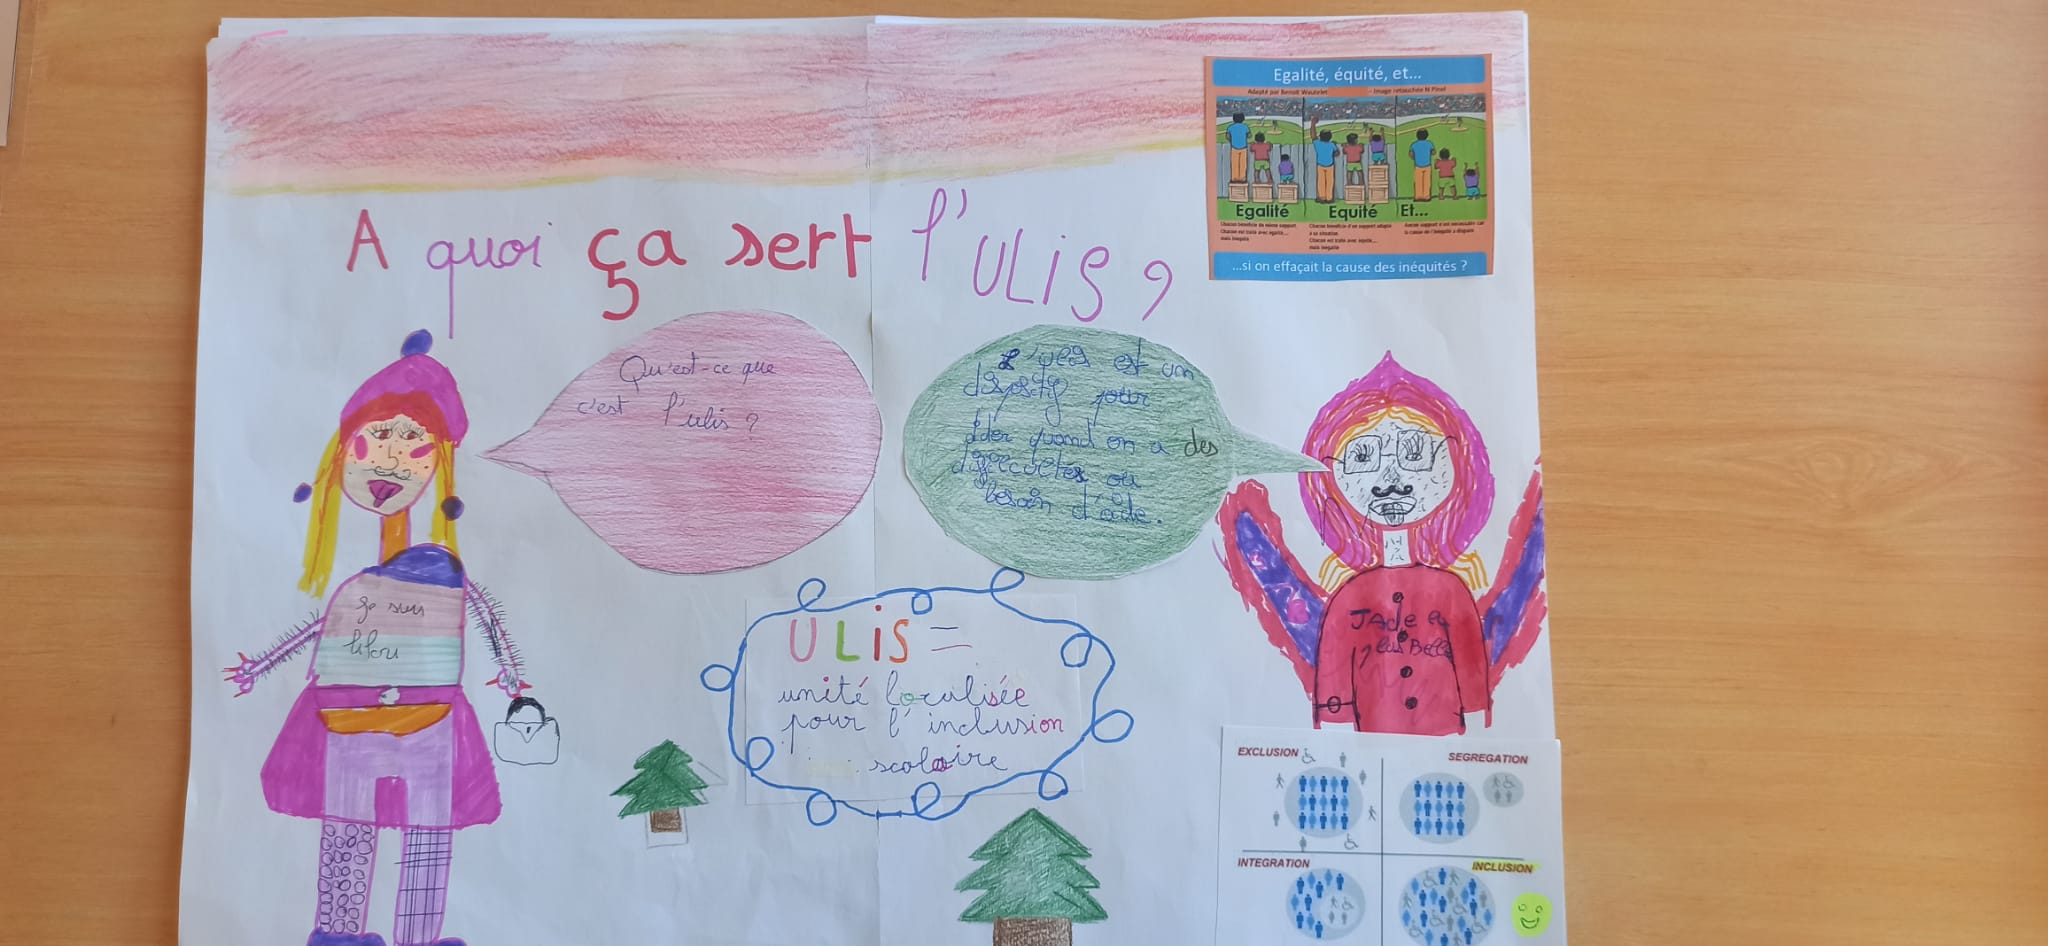 A quoi ça sert l'ULIS ?
Egalité, équité, et...
Adapté par Benoit Wautelet - Image retouchée N Pinel
Egalité
Equité
Et...
Chacun bénéficie du même support.
Chacun est traité avec égalité...
mais inégalité
Chacun bénéficie d'un support adapté
à sa situation
Chacun est traité avec équité...
mais inégalité
Aucun support n'est nécessaire car
la cause de l'inégalité a disparu
...si on effaçait la cause des inéquités ?
Qu'est-ce que
c'est l'ulis ?
L'ulis est un
dispositif pour
aider quand on a des
difficultés ou
besoin d'aide.
Je suis
lilou
JAde
ULiS =
unité localisée
pour l'inclusion
scolaire
EXCLUSION
SEGREGATION
INTEGRATION
INCLUSION